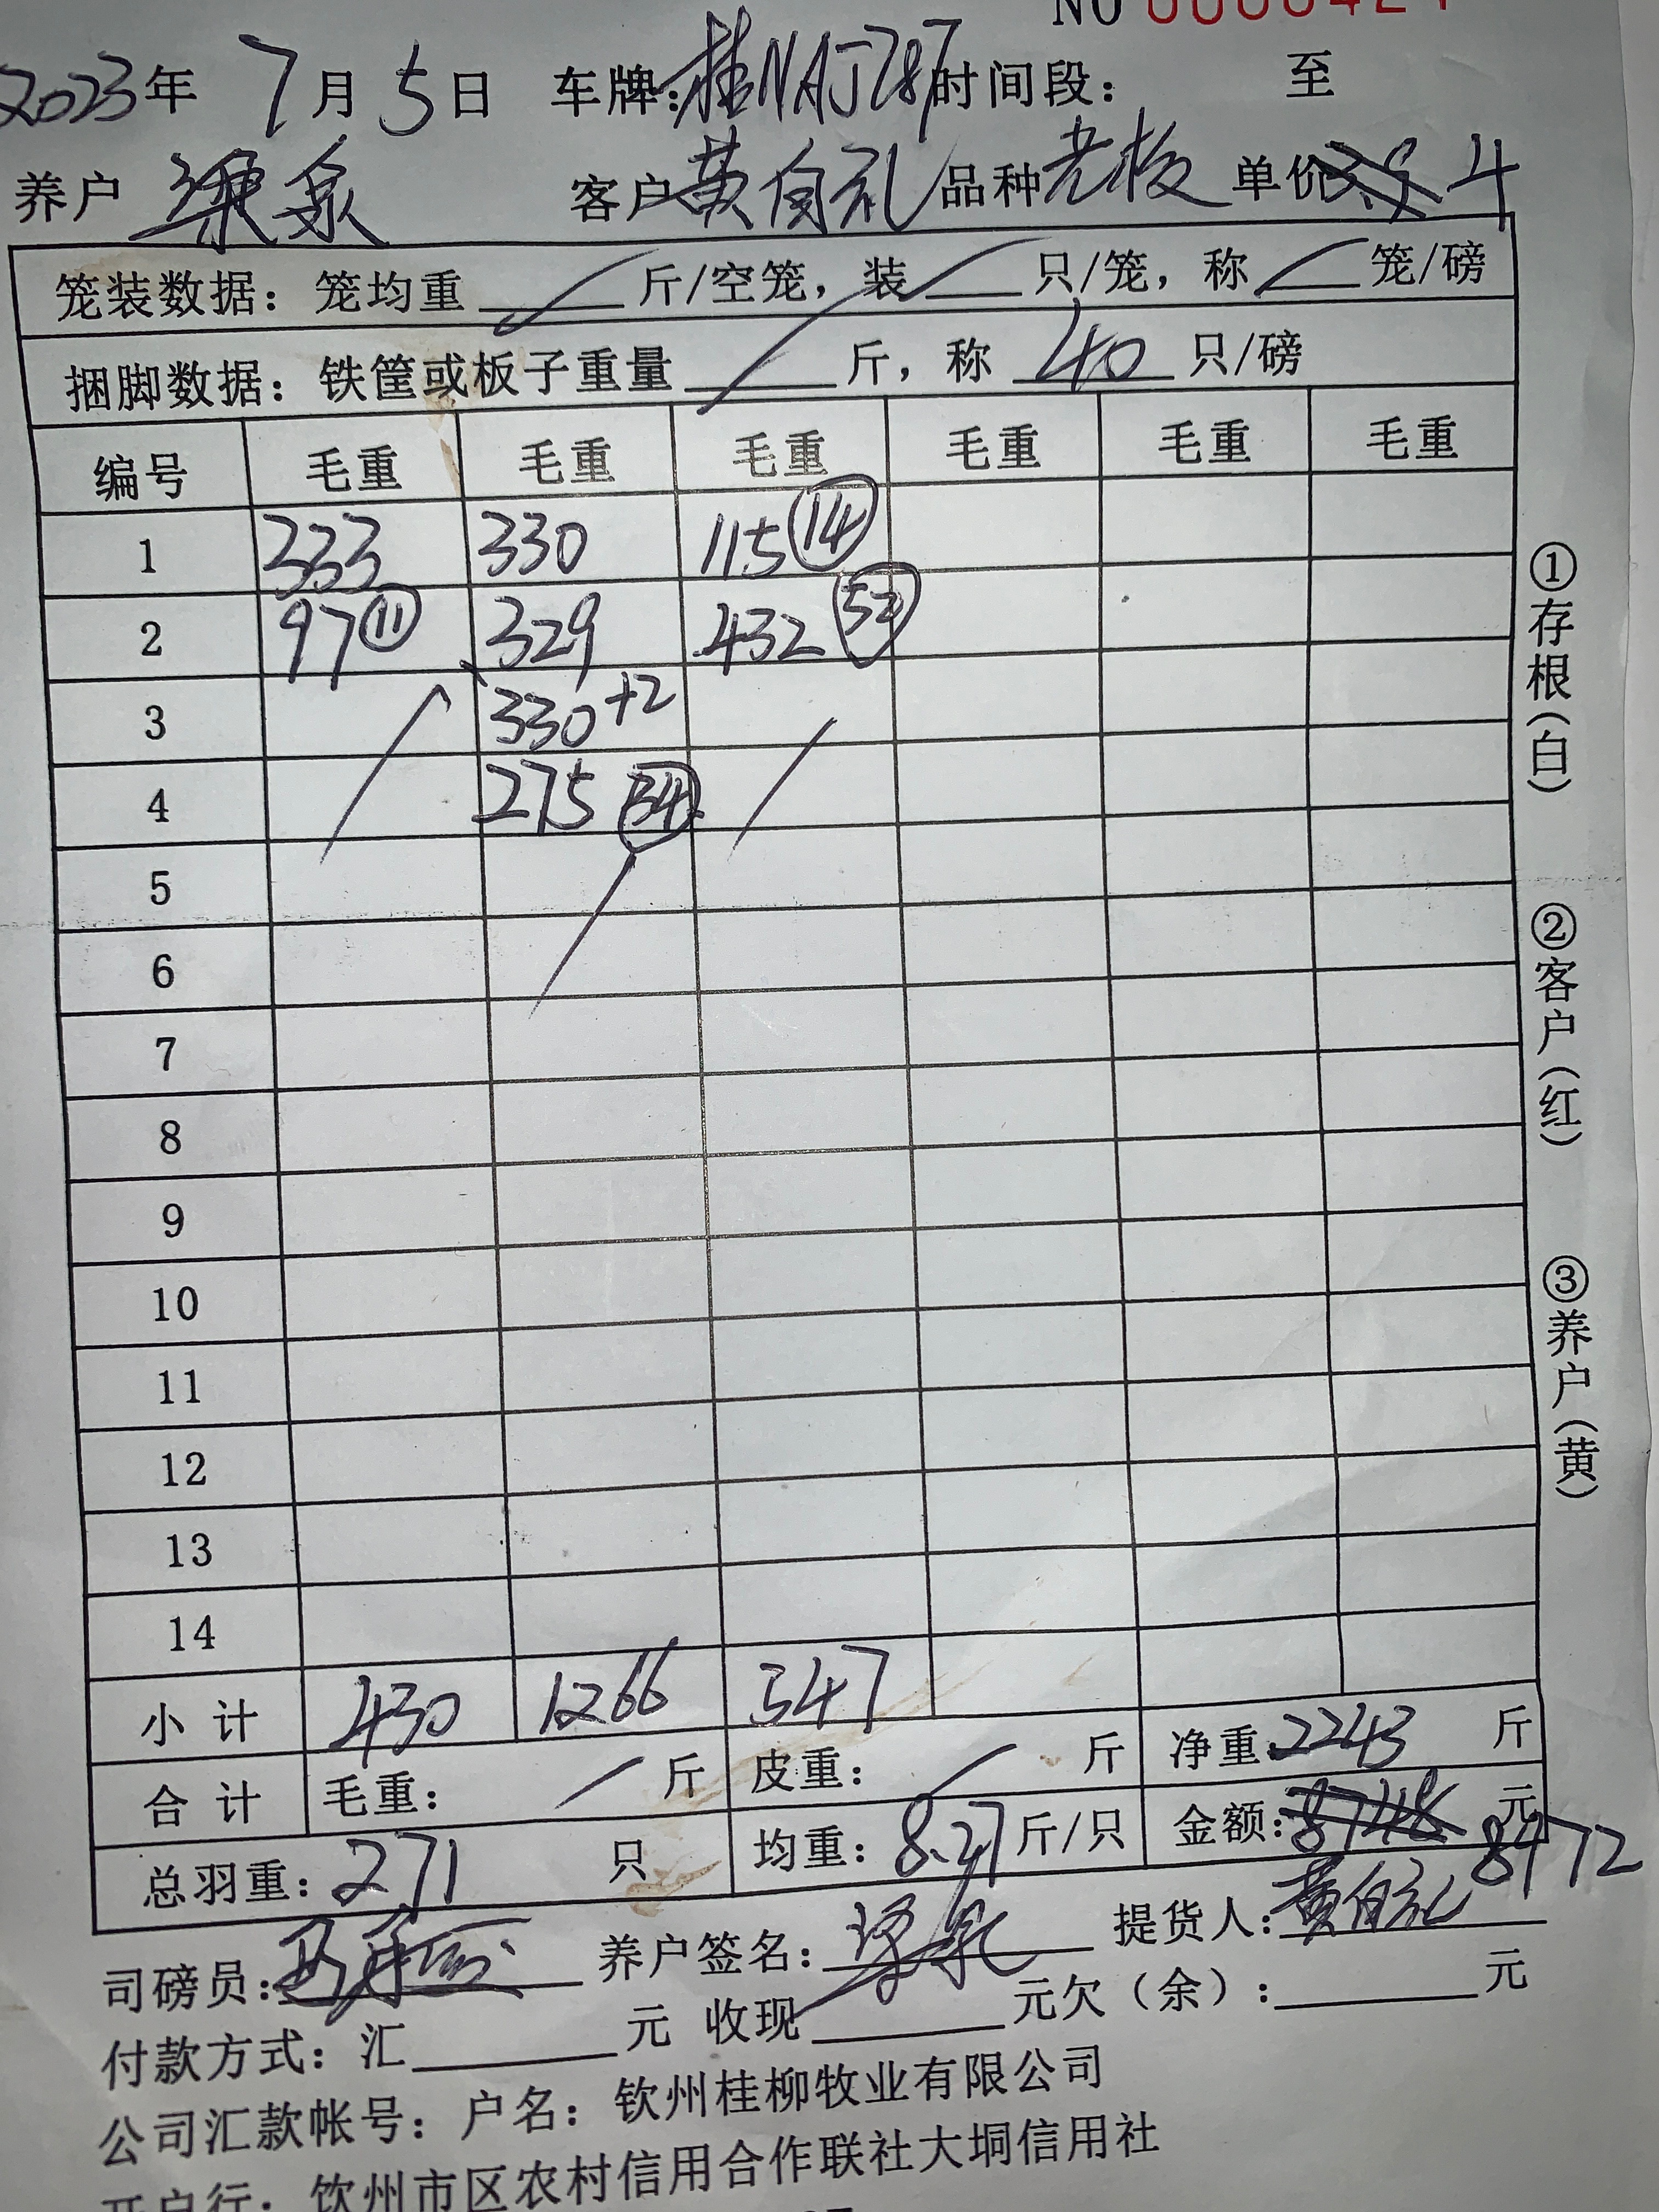 NO 0000424
2023年 7月 5日 车牌:桂NAJ787 时间段: 至
养户 梁泉 客户 黄自礼 品种 老板 单价 4
笼装数据: 笼均重 斤/空笼, 装 只/笼, 称 笼/磅
捆脚数据: 铁筐或板子重量 斤, 称 40 只/磅
编号 毛重 毛重 毛重 毛重 毛重 毛重
1 333 330 115 ⑭
2 97 ⑪ 329 432 52
3 330+2
4 275 34
5
6
7
8
9
10
11
12
13
14
小 计 430 1266 547
合 计 毛重: 斤 皮重: 斤 净重:2243 斤
总羽重:271 只 均重:8.27斤/只 金额:8748 元 8972
司磅员: 养户签名:梁泉 提货人:黄自礼
付款方式: 汇 元 收现 元欠(余): 元
公司汇款帐号: 户名: 钦州桂柳牧业有限公司
开户行: 钦州市区农村信用合作联社大垌信用社
①存根(白)
②客户(红)
③养户(黄)